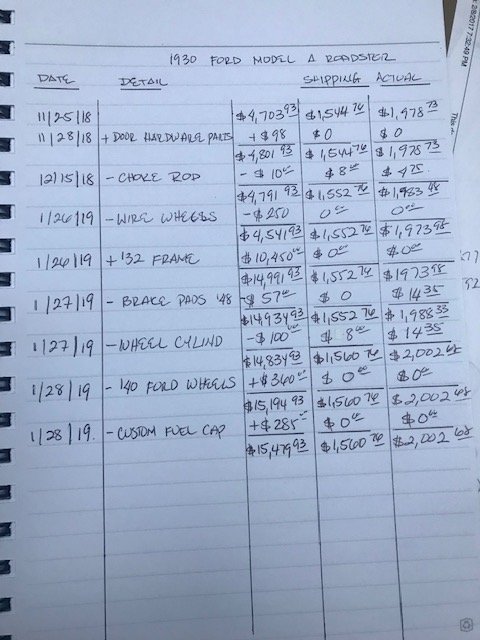 2/8/2017 7:32:49 PM
1930 FORD MODEL A ROADSTER
DATE DETAIL SHIPPING ACTUAL
11/25/18 $4,703 93 $1,544 76 $1,978 73
11/28/18 + DOOR HARDWARE PARTS + $98 $0 $0
$4,801 93 $1,544 76 $1,978 73
12/15/18 - CHOKE ROD - $10 00 $8 00 $4 75
$4,791 93 $1,552 76 $1,983 48
1/26/19 - WIRE WHEELS - $250 0 00 0 00
$4,541 93 $1,552 76 $1,973 98
1/26/19 + '32 FRAME $10,450 00 $0 00 $0 00
$14,991 93 $1,552 76 $1973 98
1/27/19 - BRAKE PADS '48 - $57 00 $0 $14 35
$14,934 93 $1,552 76 $1,988 33
1/27/19 - WHEEL CYLIND - $100 00 $8 00 $14 35
$14,834 93 $1,560 76 $2,002 68
1/28/19 - '40 FORD WHEELS + $360 00 $0 00 $0 00
$15,194 93 $1,560 76 $2,002 68
1/28/19. - CUSTOM FUEL CAP + $285 00 $0 00 $0 00
$15,479 93 $1,560 76 $2,002 68